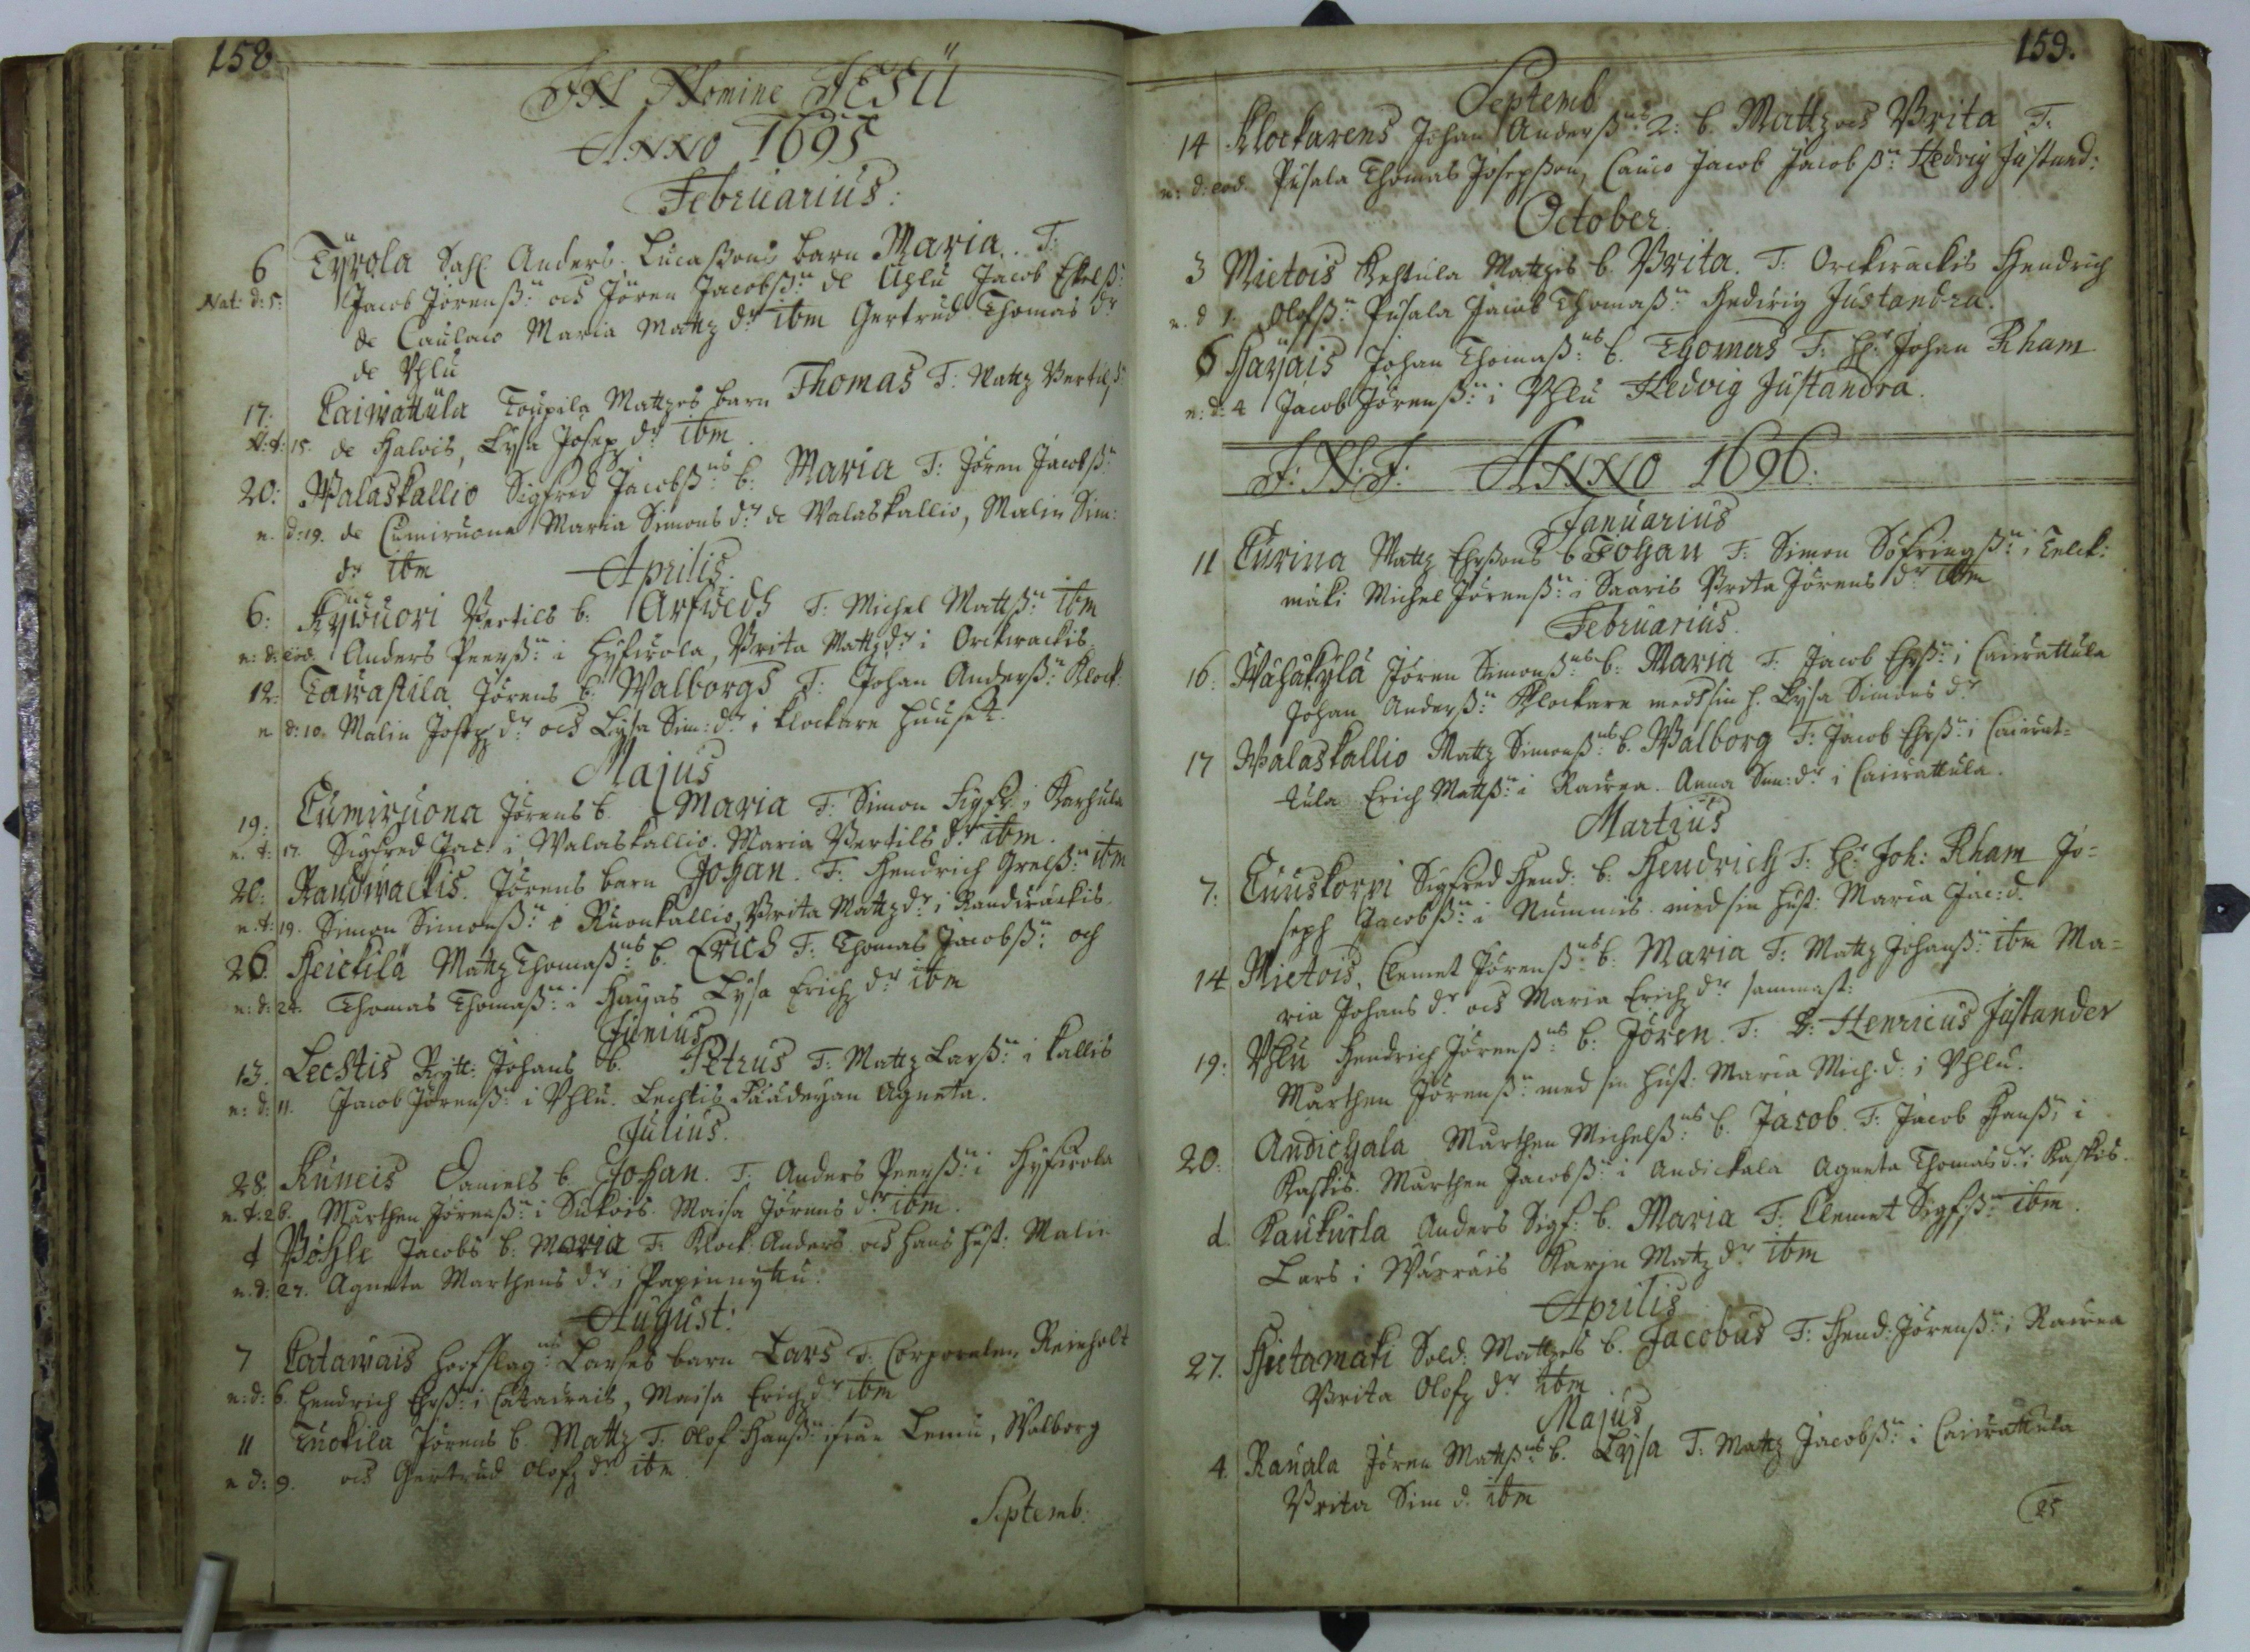 158.
IN Nomine JESU
ANNO 1695
Februarius:
6 Tyrola Sahl Anders Lucassons barn Maria. T:
Nat: d: 5: Jacob Jörenss:n och Jören Jacobss:n de Uhlu Jacob
de Caulaio Maria Mattz d:r ibm Gertrud Thomas d:r
de Vhlu
17. Caiwattula Toupila Mattzes barn Thomas T: Mattz Bertilss:
N: d: 15. de Halois, Lysa Joseph d:r ibm.
20: Walaskallio Sigfred Jacobss:ns b: Maria T: Jören Jacobss:n
n. d: 19. de Cumiruona Maria Simons d:r de Walaskallio, Malin Sim:
d:r ibm
Aprilis.
6: Kywuori Bertils b: Arfweds T: Michel Mattss:n ibm
n: d: eod. Anders Peerss:n i Hyfwola, Brita Mattz d:r i Orckwackis
12: Tawastila Jörens b: Walborgs T: Johan Anderss:n Klock:
n d: 10. Malin Joseph d:r och Lysa Sim: d:r i klockare huuset.
Majus
19: Cumiruona Jörens b. Maria T: Simon Sigfr: i Karhula
n. d: 17. Sigfred Jac: i Walaskallio. Maria Bertils d:r ibm.
20: Randwackis. Jörens barn Johan. T: Hendrich Grelss:n ibm
n. d: 19. Simon Simonss:n i Ruonkallio, Brita Mattz d:r i Randwackis.
26. Heickilä Mattz Thomass:ns b. Erich T: Thomas Jacobss:n och
n: d: 24. Thomas Thomass:n i Hayas Lysa Erichz d:r ibm
Junius
13. Lechtis Rytt: Johans b. Petrus T: Mattz Larss:n i Kallis
n: d: 11. Jacob Jörenss:n i Vhlu. Lechtis Agneta.
Julius.
28. Kuneis Daniels b. Johan. T: Anders Peerss:n i Hyfwola
n. d: 26. Marthen Jörenss:n i Sukois. Maisa Jörens d:r ibm.
d Böhle Jacobs b: Maria T: Klock: Anders och hans hust: Malin
n. d: 27. Agneta Marthens d:r i Papinnyttu.
August:
7 Catawais hofslag:ns Larses barn Lars T: Corporalen Reinholt
n: d: 6. Hendrich Ehrss:n i Catawais, Maisa Erichz d:r ibm
11 Tuokila Jörens b. Mattz T: Olof Hanss:n ifrån Lemu, Walborg
n d: 9. och Gertrud Olofz d:r ibm
Septemb:
159.
Septemb
14 Klockarens Johan Anderss:ns 2: b. Mattz och Brita T:
n: d: eod. Pusala Thomas Josepsson, Cauio Jacob Jacobss:n Hedvig Justand:
October
3 Mietois Kestula Mattzes b. Brita. T: Orckwackis Hendrich
n. d 1. Olofss:n Pusala Jacob Thomass:n Hedvig Justandra.
6 Hayais Johan Thomass:ns b. Thomas T: H:r Johan Rham
n: d: 4 Jacob Jörenss:n i Vhlu Hedvig Justandra.
I: N: J: ANNO 1696.
Januarius
11 Curina Mattz Ehrssons b Johan T: Simon Sö i
mäki Michel Jörenss:n i Saaris Brita Jörens d:r ibm
Februarius.
16. Wähäkylä Jören Simonss:ns b: Maria T: Jacob Ehrss:n i Caiwattula
Johan Anderss:n Klockare medh sin h. Lysa Simons d:r
17 Walaskallio Mattz Simonss:ns b. Walborg T: Jacob Ehrss:n i Caiwat=
tula Erich Mattss:n i Rawea. Anna Sim: d:r i Caiwattula.
Martius
7: Cuuskorpi Sigfred Hend: b: Hendrich T: H:r Joh: Rham Jo=
seph Jacobss:n i Nummis. med sin hust: Maria Jac: d.
14 Mietois, Clemet Jörenss:ns b: Maria T: Mattz Johanss:n ibm Ma=
ria Johans d:r och Maria Erichz d:r sammast:
19: Vhlu Hendrich Jörenss:ns b: Jören. T: D: Henricus Justander
Marthen Jörenss:n med sin hust: Maria Mich: d: i Vhlu.
20. Andichala Marthen Michelss:ns b. Jacob. T: Jacob Hanss:n i
Kaskis. Marthen Jacobss:n i Andickala Agneta Thomas d:r i Kaskis.
d Kaukurla Anders Sigf: b. Maria T: Clemet Sigfss:n ibm.
Lars i Wärrais Karin Matz d:r ibm
Aprilis
27. Hietamäki Sold: Mattzes b. Jacobus T: Hend: Jörenss:n i Rawea
Brita Olofz d:r ibm
Majus
4. Rauala Jören Mattss:ns b. Lysa T: Mattz Jacobss:n i Caiwattula
Brita Sim d. ibm
25